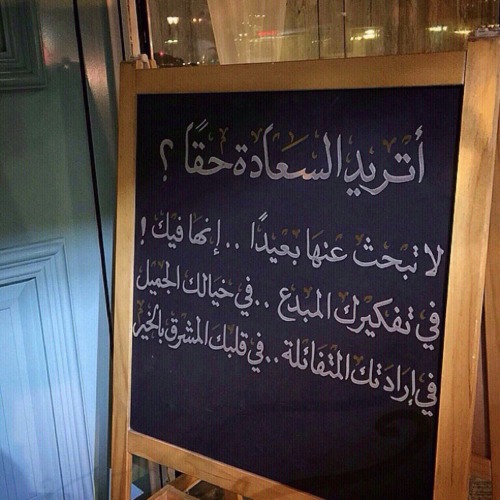 أتريد السعادة حقًا ؟
لا تبحث عنها بعيدًا .. إنها فيك !
في تفكيرك المبدع .. في خيالك الجميل
في إرادتك المتفائلة .. في قلبك المشرق بالخير